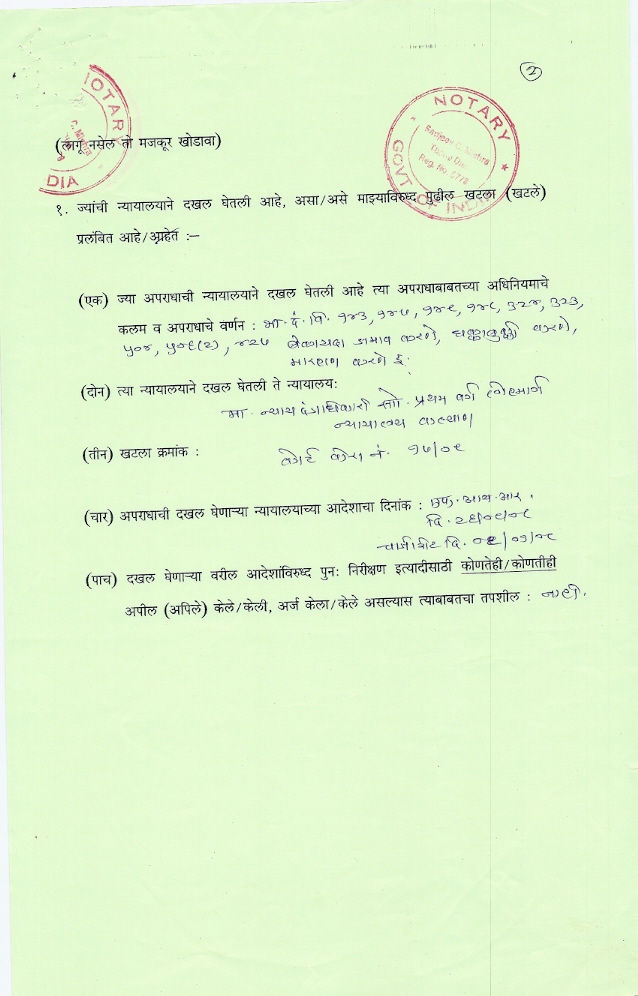 २
NOTARY
NOTARY
GOVT OF INDIA
DIA
Reg. No.
(लागू नसेल तो मजकूर खोडावा)
१. ज्यांची न्यायालयाने दखल घेतली आहे, असा/असे माझ्याविरुध्द पुढील खटला (खटले)
प्रलंबित आहे/आहेत :—
(एक) ज्या अपराधाची न्यायालयाने दखल घेतली आहे त्या अपराधाबाबतच्या अधिनियमाचे
कलम व अपराधाचे वर्णन : भा. दं. वि. १४३, १४७, १४९, १४८, ३२४, ३२३,
५०४, ५०६(२), ४२७ बेकायदा जमाव करणे, धक्काबुक्की करणे,
मारहाण करणे इ.
(दोन) त्या न्यायालयाने दखल घेतली ते न्यायालय:
मा. न्याय दंडाधिकारी सो. प्रथम वर्ग
न्यायालय कल्याण
(तीन) खटला क्रमांक : कोर्ट केस नं. १७/०९
(चार) अपराधाची दखल घेणाऱ्या न्यायालयाच्या आदेशाचा दिनांक : एफ. आय. आर.
दि.
चार्जशीट दि.
(पाच) दखल घेणाऱ्या वरील आदेशांविरुध्द पुन: निरीक्षण इत्यादीसाठी कोणतेही/कोणतीही
अपील (अपिले) केले/केली, अर्ज केला/केले असल्यास त्याबाबतचा तपशील : नाही.